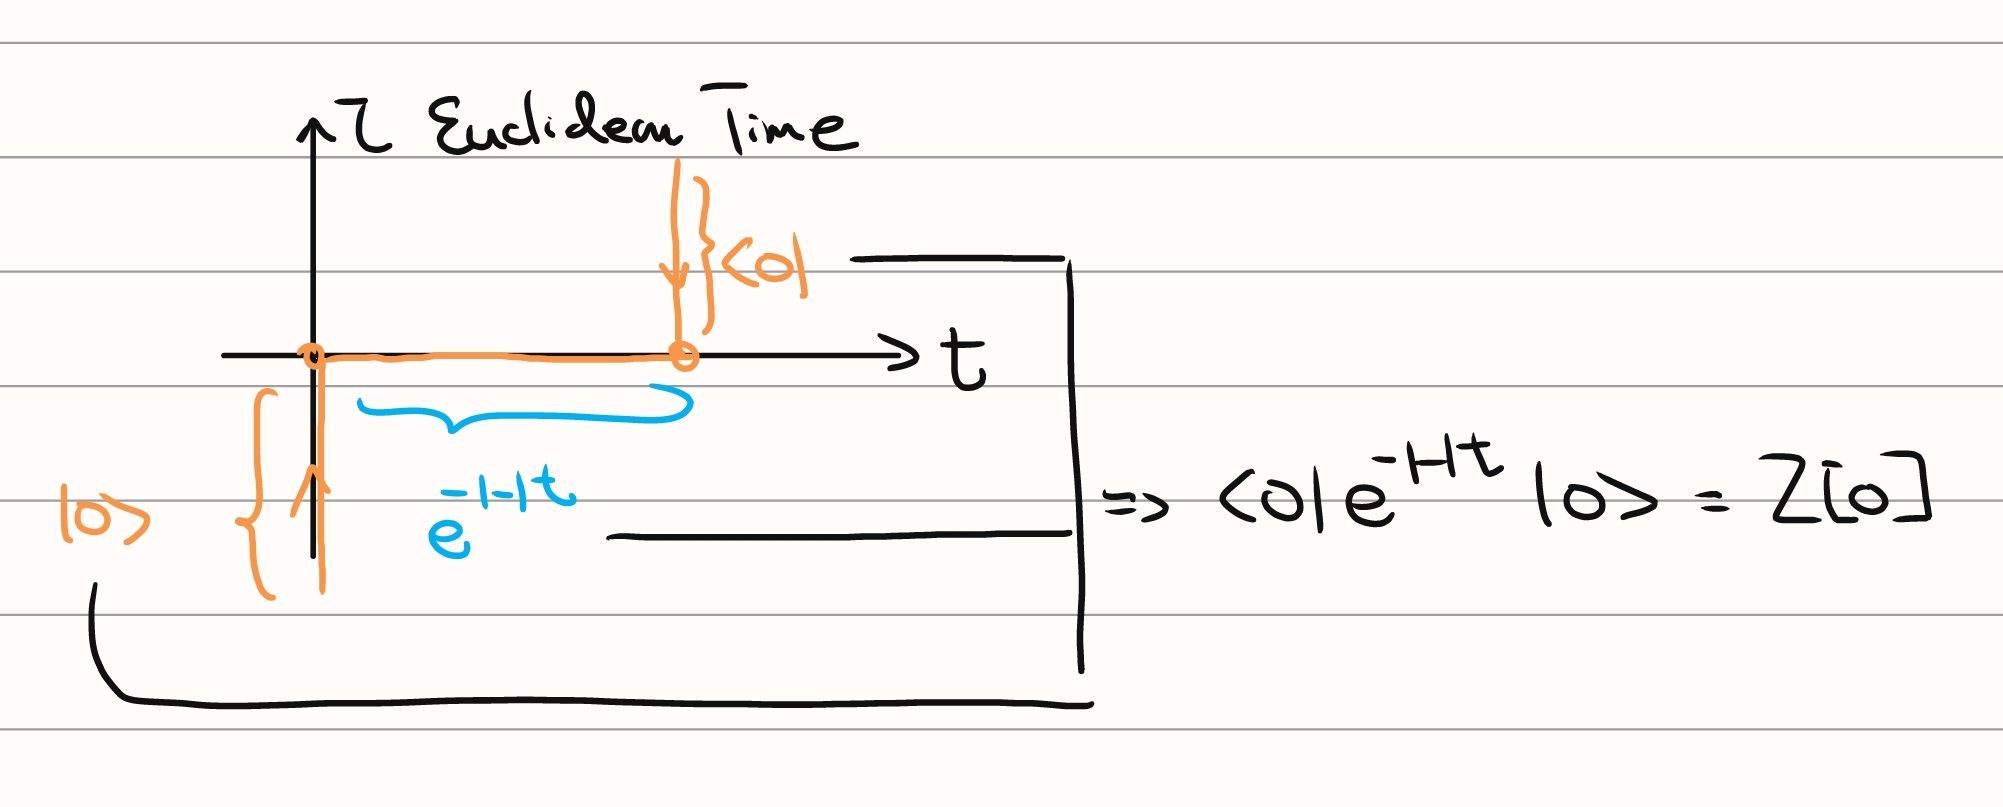 τ Euclidean Time
<0|
t
|0>
e^{-Ht}
=> <0|e^{-Ht}|0> = Z[0]